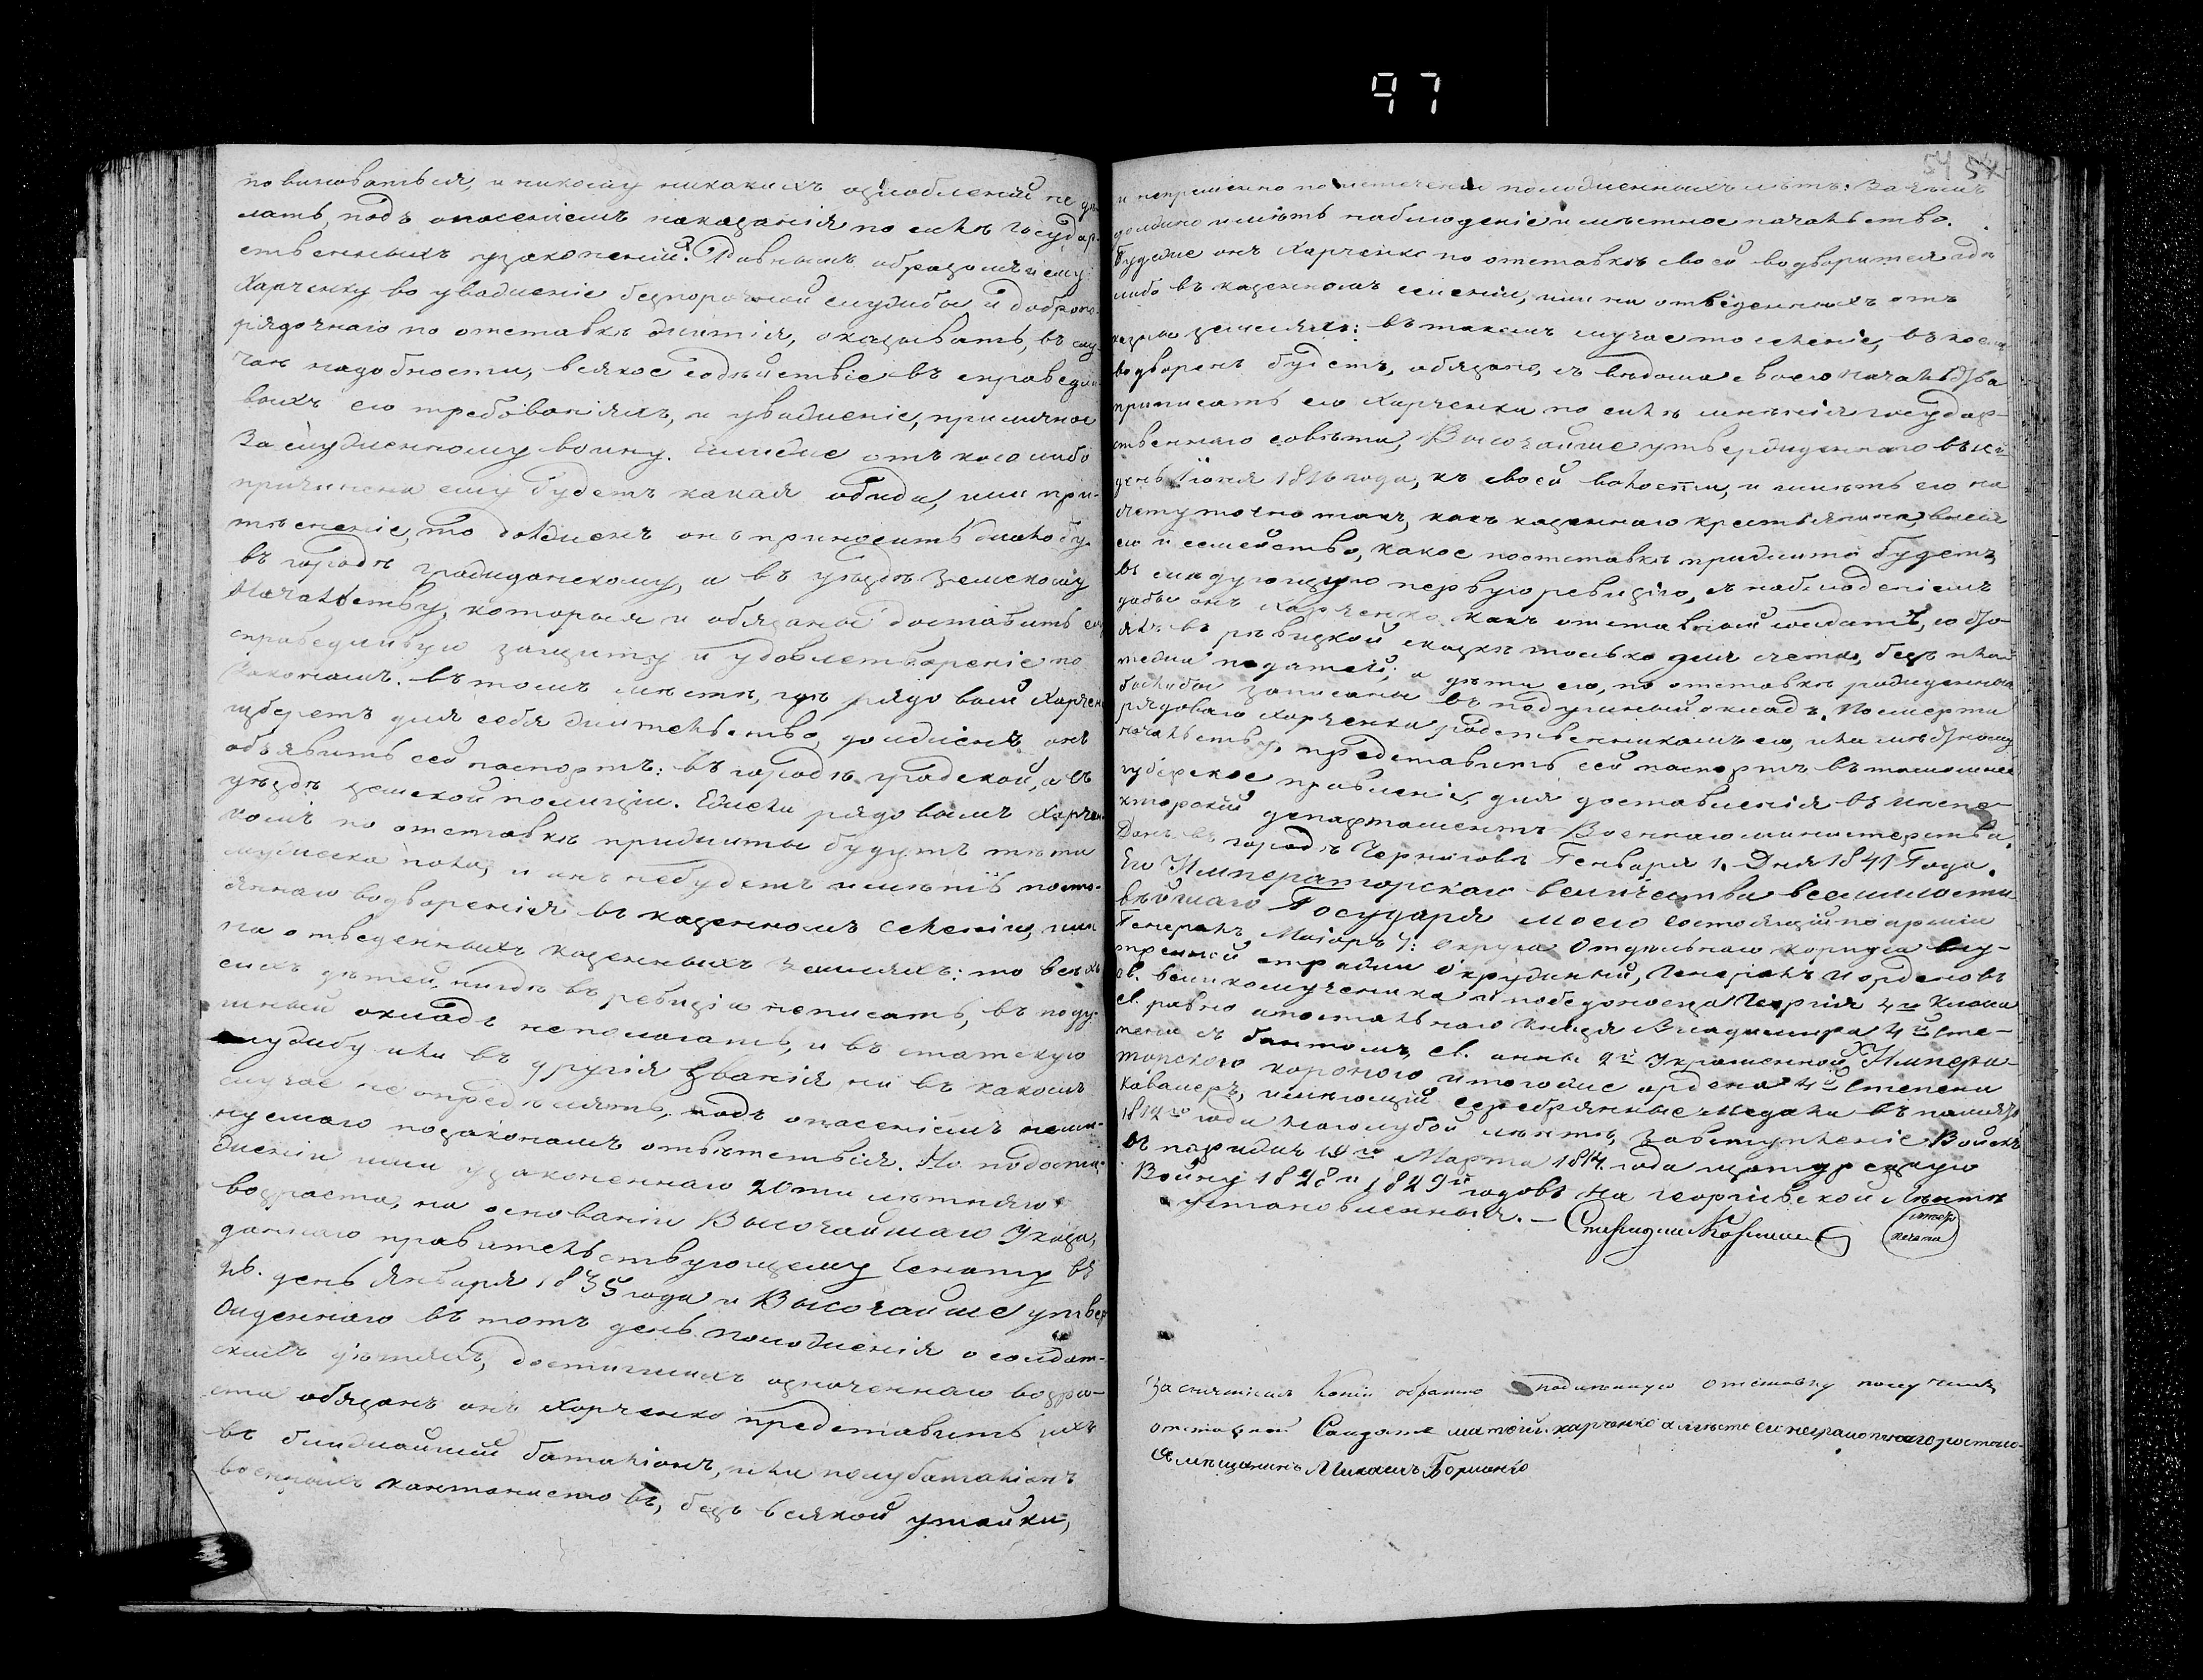 97
54 54
повиноваться, и никому никакихъ озлобленій не дѣ
лать, подъ опасеніемъ наказанія по силѣ Государ-
ственныхъ узаконеній. Равнымъ образомъ и ему
Харченку во уваженіе безпорочной службы и добропо-
рядочнаго по отставкѣ житія, оказывать, въ слу-
чаѣ надобности, всякое содѣйствіе въ справедли
выхъ его требованіяхъ, и уваженіе, приличное
Заслуженному воину. Ежели же отъ кого либо
причинена ему будетъ какая обида, или при-
тѣсненіе, то долженъ онъ приносить жалобу
въ городѣ гражданскому, а въ уѣздѣ Земскому
Начальству, которыя и обязаны доставить ему
справедливую защиту и удовлетвореніе по
Законамъ. Въ томъ мѣстѣ, гдѣ рядовой Харчен
изберетъ для себя жительство, долженъ онъ
объявить сей паспортъ: въ городѣ градской, а въ
уѣздѣ земской полиціи. Ежели рядовымъ Харчен
комъ по отставкѣ прижиты будутъ дѣти
мужеска пола, и онъ небудетъ имѣть посто-
яннаго водворенія въ казенномъ селеніи, или
на отведенныхъ казенныхъ земляхъ: то всѣхъ
сихъ дѣтей, нигдѣ въ ревизіи неписать, въ поду-
шный окладъ неполагать, и въ статскую
службу или въ другія званія ни въ какомъ
случае не опредѣлять, подъ опасеніемъ неми-
нуемаго позаконамъ отвѣтствія. Но подости-
женіи ими узаконеннаго 20ти лѣтняго
возраста, на основаніи Высочайшаго Указа,
даннаго правительствующему Сенату въ
день января 1835 года и Высочайше утвер
жденнаго въ тотъ день положенія о солдат-
скихъ дѣтяхъ, достигшихъ означеннаго возра-
ста обязанъ онъ Харченко представить ихъ
въ ближайший баталіонъ, или полубаталіонъ
военныхъ кантонистовъ, безъ всякой утайки,
и непремѣнно по истеченіи положенныхъ лѣтъ: За чѣмъ
должно имѣть наблюденіе и мѣстное начальство.
Буде же онъ Харченко по отставкѣ своей водворится гдѣ
либо въ казенномъ селеніи, или на отведенныхъ отъ
казны земляхъ: въ такомъ случае то селеніе, въ коемъ
водворенъ будетъ, обязано, съ вѣдома своего начальства
приписать его Харченка по силѣ мнѣнія государ-
ственнаго совѣта, Высочайше утвержденнаго въ
день Іюня 1816 года, къ своей волости, и имѣть его на
счету точно такъ, какъ казеннаго крестьянина, внеся
его и семейство, какое поотставкѣ прижито будетъ,
въ слѣдующую первую ревизію, съ наблюденіемъ
дабы онъ Харченко какъ отставной солдатъ, состо
ялъ въ ревизкой сказкѣ только для счета, безъ пла
тежа податей; а дѣти его, по отставкѣ рожденныя
былибы записаны въ подушный окладъ. По смерти
рядоваго Харченка родственникамъ его, или мѣстному
начальству, представить сей паспортъ въ тамошнее
губерское правленіе, для доставленія въ инспе-
кторскій департаментъ Военнаго министерства.
Данъ въ городѣ Черниговѣ Генваря 1. Дня 1841 Года.
Его Императорскаго величества всемилости
вѣйшаго Государя моего состоящій по арміи
Генералъ Маіоръ 4: Округа Отдѣльнаго корпуса вну-
тренней стражи окружный, генералъ и орденовъ
св. великомученика и победоносца Георгія 4го класа
св. равно апостальнаго князя Владимира 4й сте-
пени съ бантомъ, св. анны 2й украшенной Импера-
торскою короною итогоже ордена 4й степени
Кавалеръ, имѣющій серебрянные медали въ память
1812го года наголубой лентѣ, завступленіе Войскъ
въ парижъ 19го Марта 1814 года изатурецкую
Войну 1828 и 1829й годовъ на георгіевской лентѣ
установленныя.
мѣсто
печати
За снятіемъ Копіи обратно подлинную отставку получилъ
отставной Салдатъ матвѣй харченко а вмѣсто его неграмотнаго росписал
ся мещанинъ